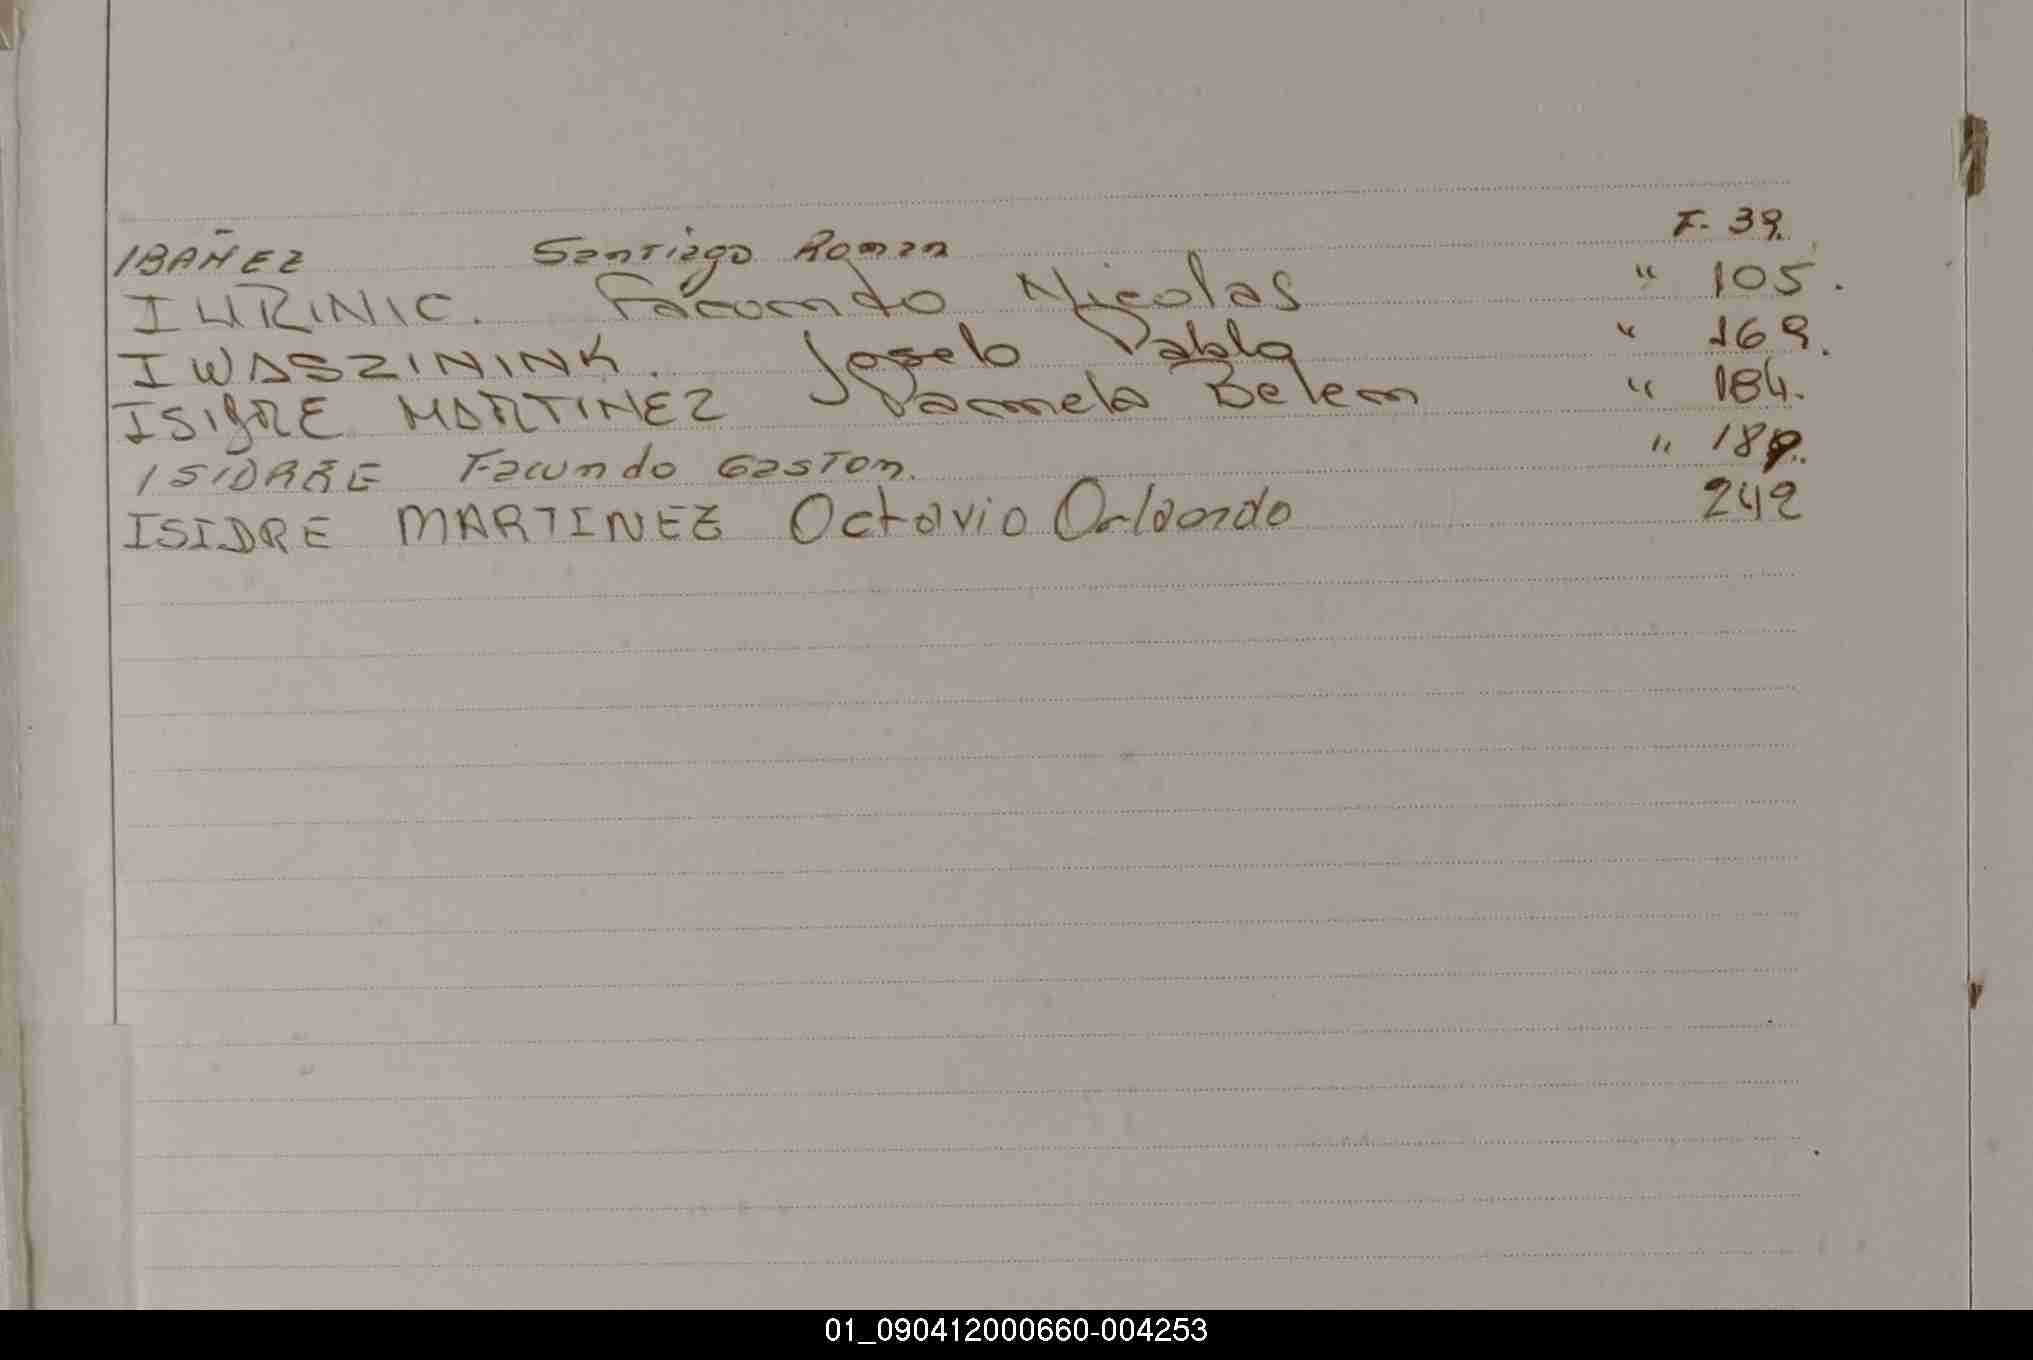 IBAÑEZ Santiago Roman F. 39.
IURINIC. Facundo Nicolas " 105.
IWASZININK. Joselo Pablo " 169.
ISIDRE MARTINEZ Pamela Belem " 184.
ISIDRRE Facundo Gaston. "
ISIDRE MARTINEZ Octavio Orlando 242
01_090412000660-004253